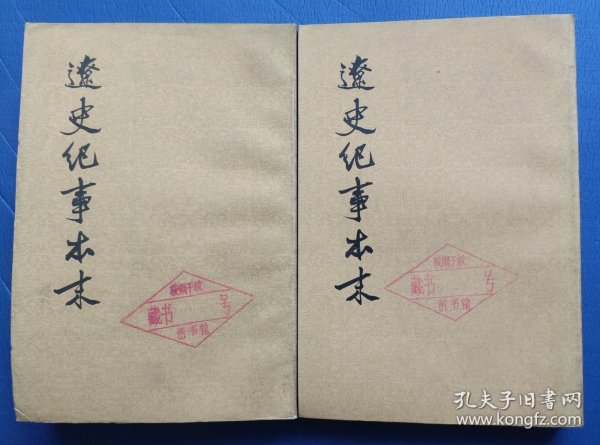 遼史纪事本末
鞍钢干校
藏书 号
图书馆
遼史纪事本末
鞍钢干校
藏书 号
图书馆
孔夫子旧书网
www.kongfz.com